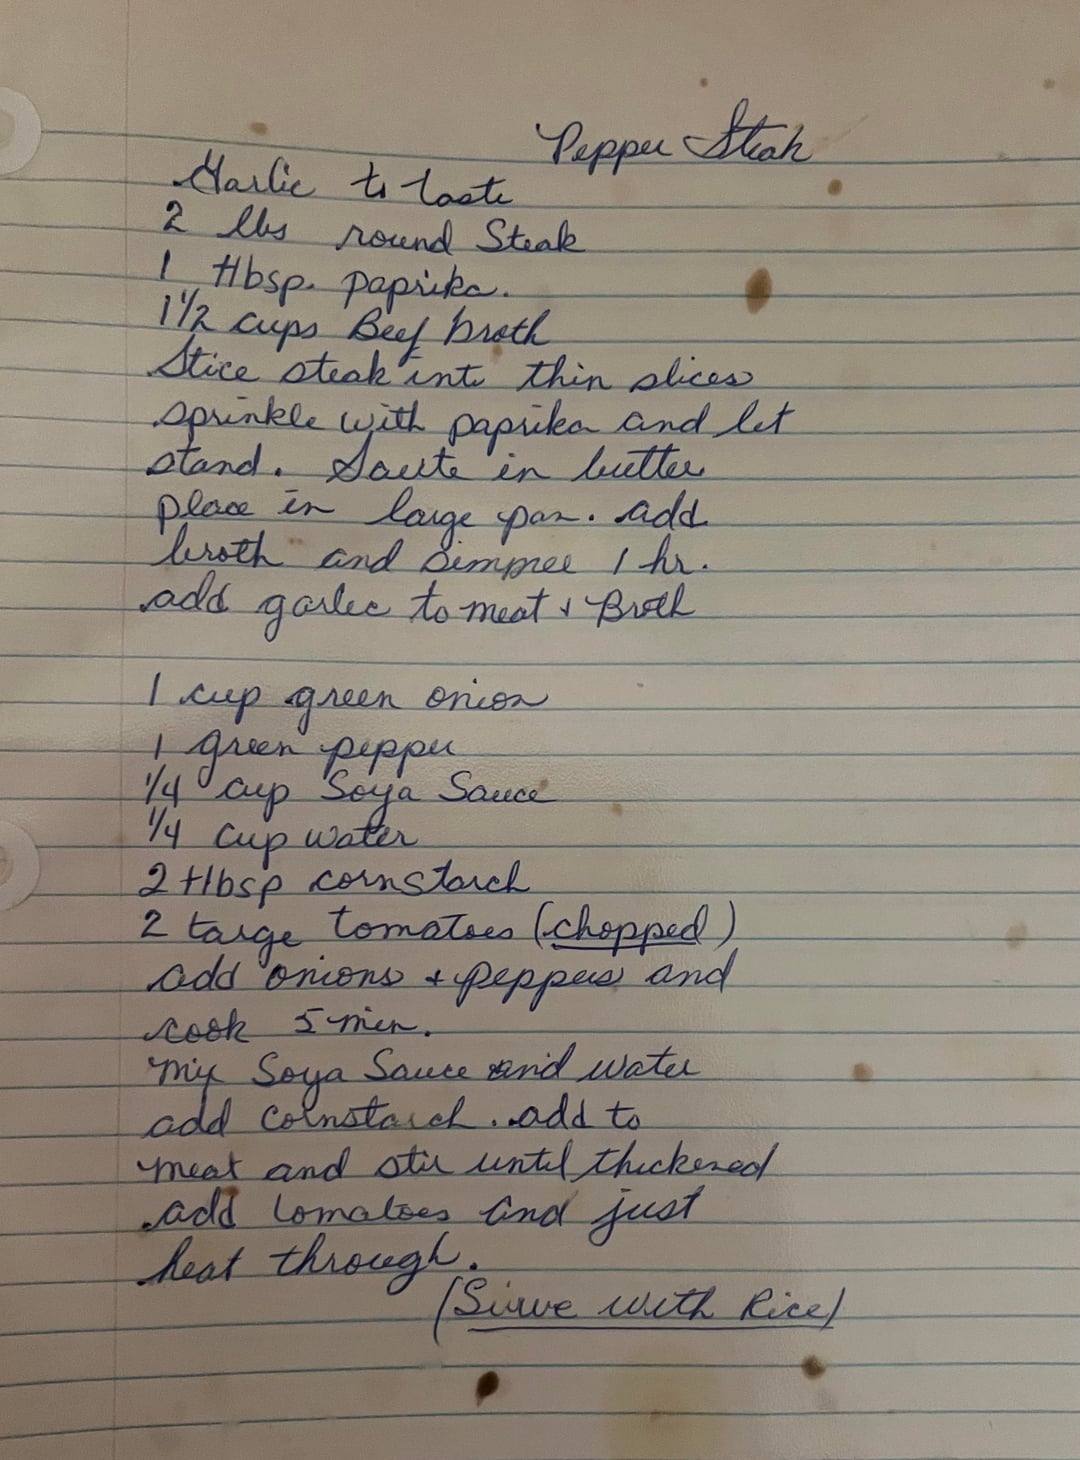 Pepper Steak
Garlic to taste
2 lbs round Steak
1 tbsp. paprika.
1 1/2 cups Beef broth
Slice steak into thin slices
sprinkle with paprika and let
stand. Saute in butter
place in large pan. add
broth and Simmer 1 hr.
add garlic to meat & Broth
1 cup green onion
1 green pepper
1/4 cup Soya Sauce
1/4 cup water
2 tbsp cornstarch
2 large tomatoes (chopped)
add onions & peppers and
cook 5 min.
mix Soya Sauce and water
add cornstarch. add to
meat and stir until thickened
add tomatoes and just
heat through.
(Surve with Rice)